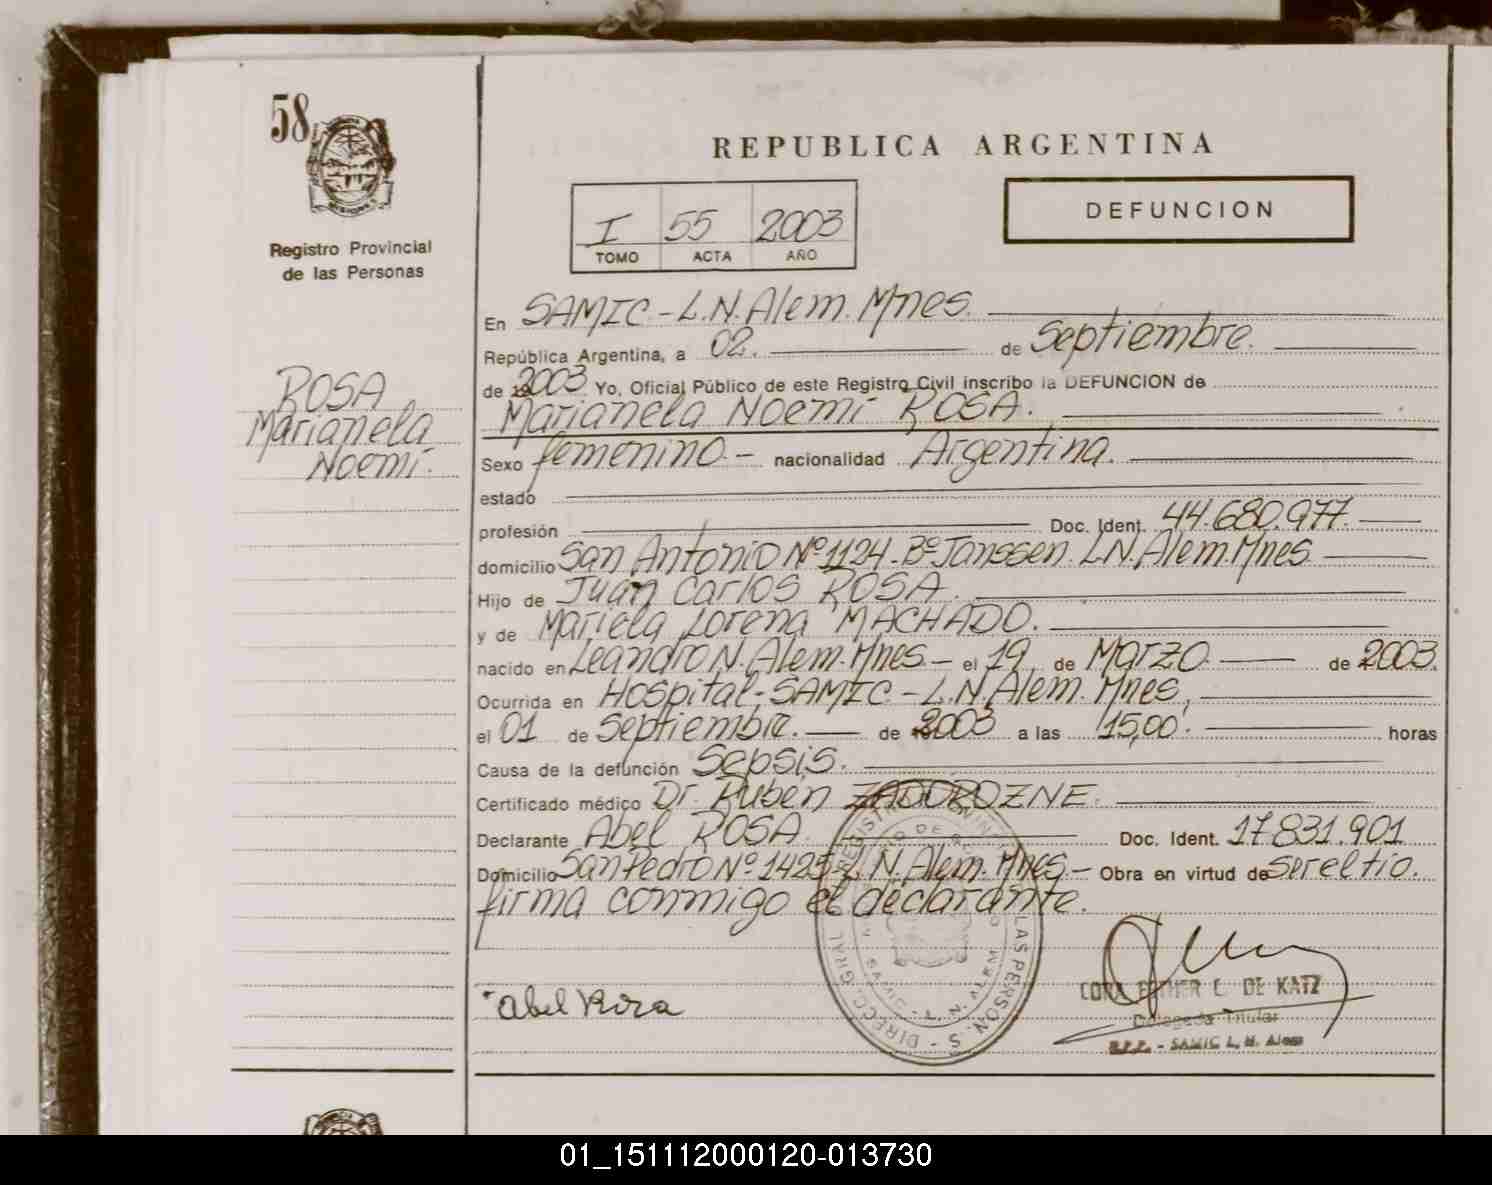 58
Registro Provincial
de las Personas
REPUBLICA ARGENTINA
I 55 2003
TOMO ACTA AÑO
DEFUNCION
ROSA
Marianela
Noemí.
En SAMIC-L.N.Alem.Mnes.
República Argentina, a 02. de Septiembre.
de 2003 Yo, Oficial Público de este Registro Civil inscribo la DEFUNCION de
Marianela Noemí ROSA.
Sexo femenino.- nacionalidad Argentina.
estado
profesión Doc. Ident. 44.680.977.
domicilio San Antonio Nº 1124-Bº Janssen. L.N.Alem.Mnes
Hijo de Juan Carlos ROSA.
y de Mariela Lorena MACHADO.
nacido en Leandro N. Alem. Mnes.- el 19 de Marzo de 2003.
Ocurrida en Hospital-SAMIC.-L.N.Alem. Mnes,
el 01 de Septiembre. de 2003 a las 15,00. horas
Causa de la defunción Sepsis.
Certificado médico Dr. Rubén ZADOROZNE.
Declarante Abel ROSA. Doc. Ident. 17.831.901
Domicilio San Pedro Nº 1425-L.N.Alem.Mnes.- Obra en virtud de ser el tío.
firma conmigo el declarante.
Abel Rosa
DE KATZ
Delegada Titular
R.P.P. - SAMIC L. N. Alem
DIRECC. GRAL LAS PERSON. S.
SAMIC - L. N. ALEM
01_151112000120-013730